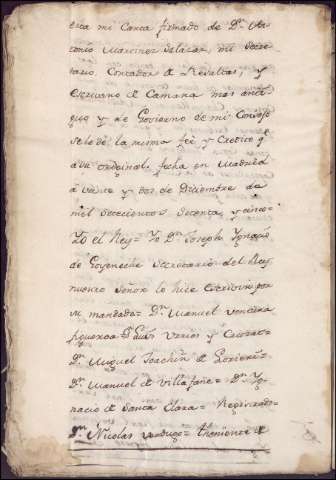 esta mi Carta firmado de Dn. An-
tonio Martinez Salazar, mi Secre-
tario, Contador de Resultas, y
escrivano de Camara mas anti-
guo y de Govierno de mi Consejo
se le dé la misma feé y Credito q.
a su original. fecha en Madrid
a veinte y dos de Diciembre de
mil setecientos setenta y cinco=
Yo el Rey= Yo Dn. Joseph Ygnacio
de Goyeneche Secretario del Rey
nuestro Señor lo hice escrivir por
su mandado= Dn. Manuel Ventura
figueroa= Dn. Luis Urries y Cruzat=
Dn. Miguel Joachin de Lorieri=
Dn. Manuel de Villafañe= Dn. Yg-
nacio de Santa Clara= Registrado=
Dn. Nicolas verdugo= theniente de